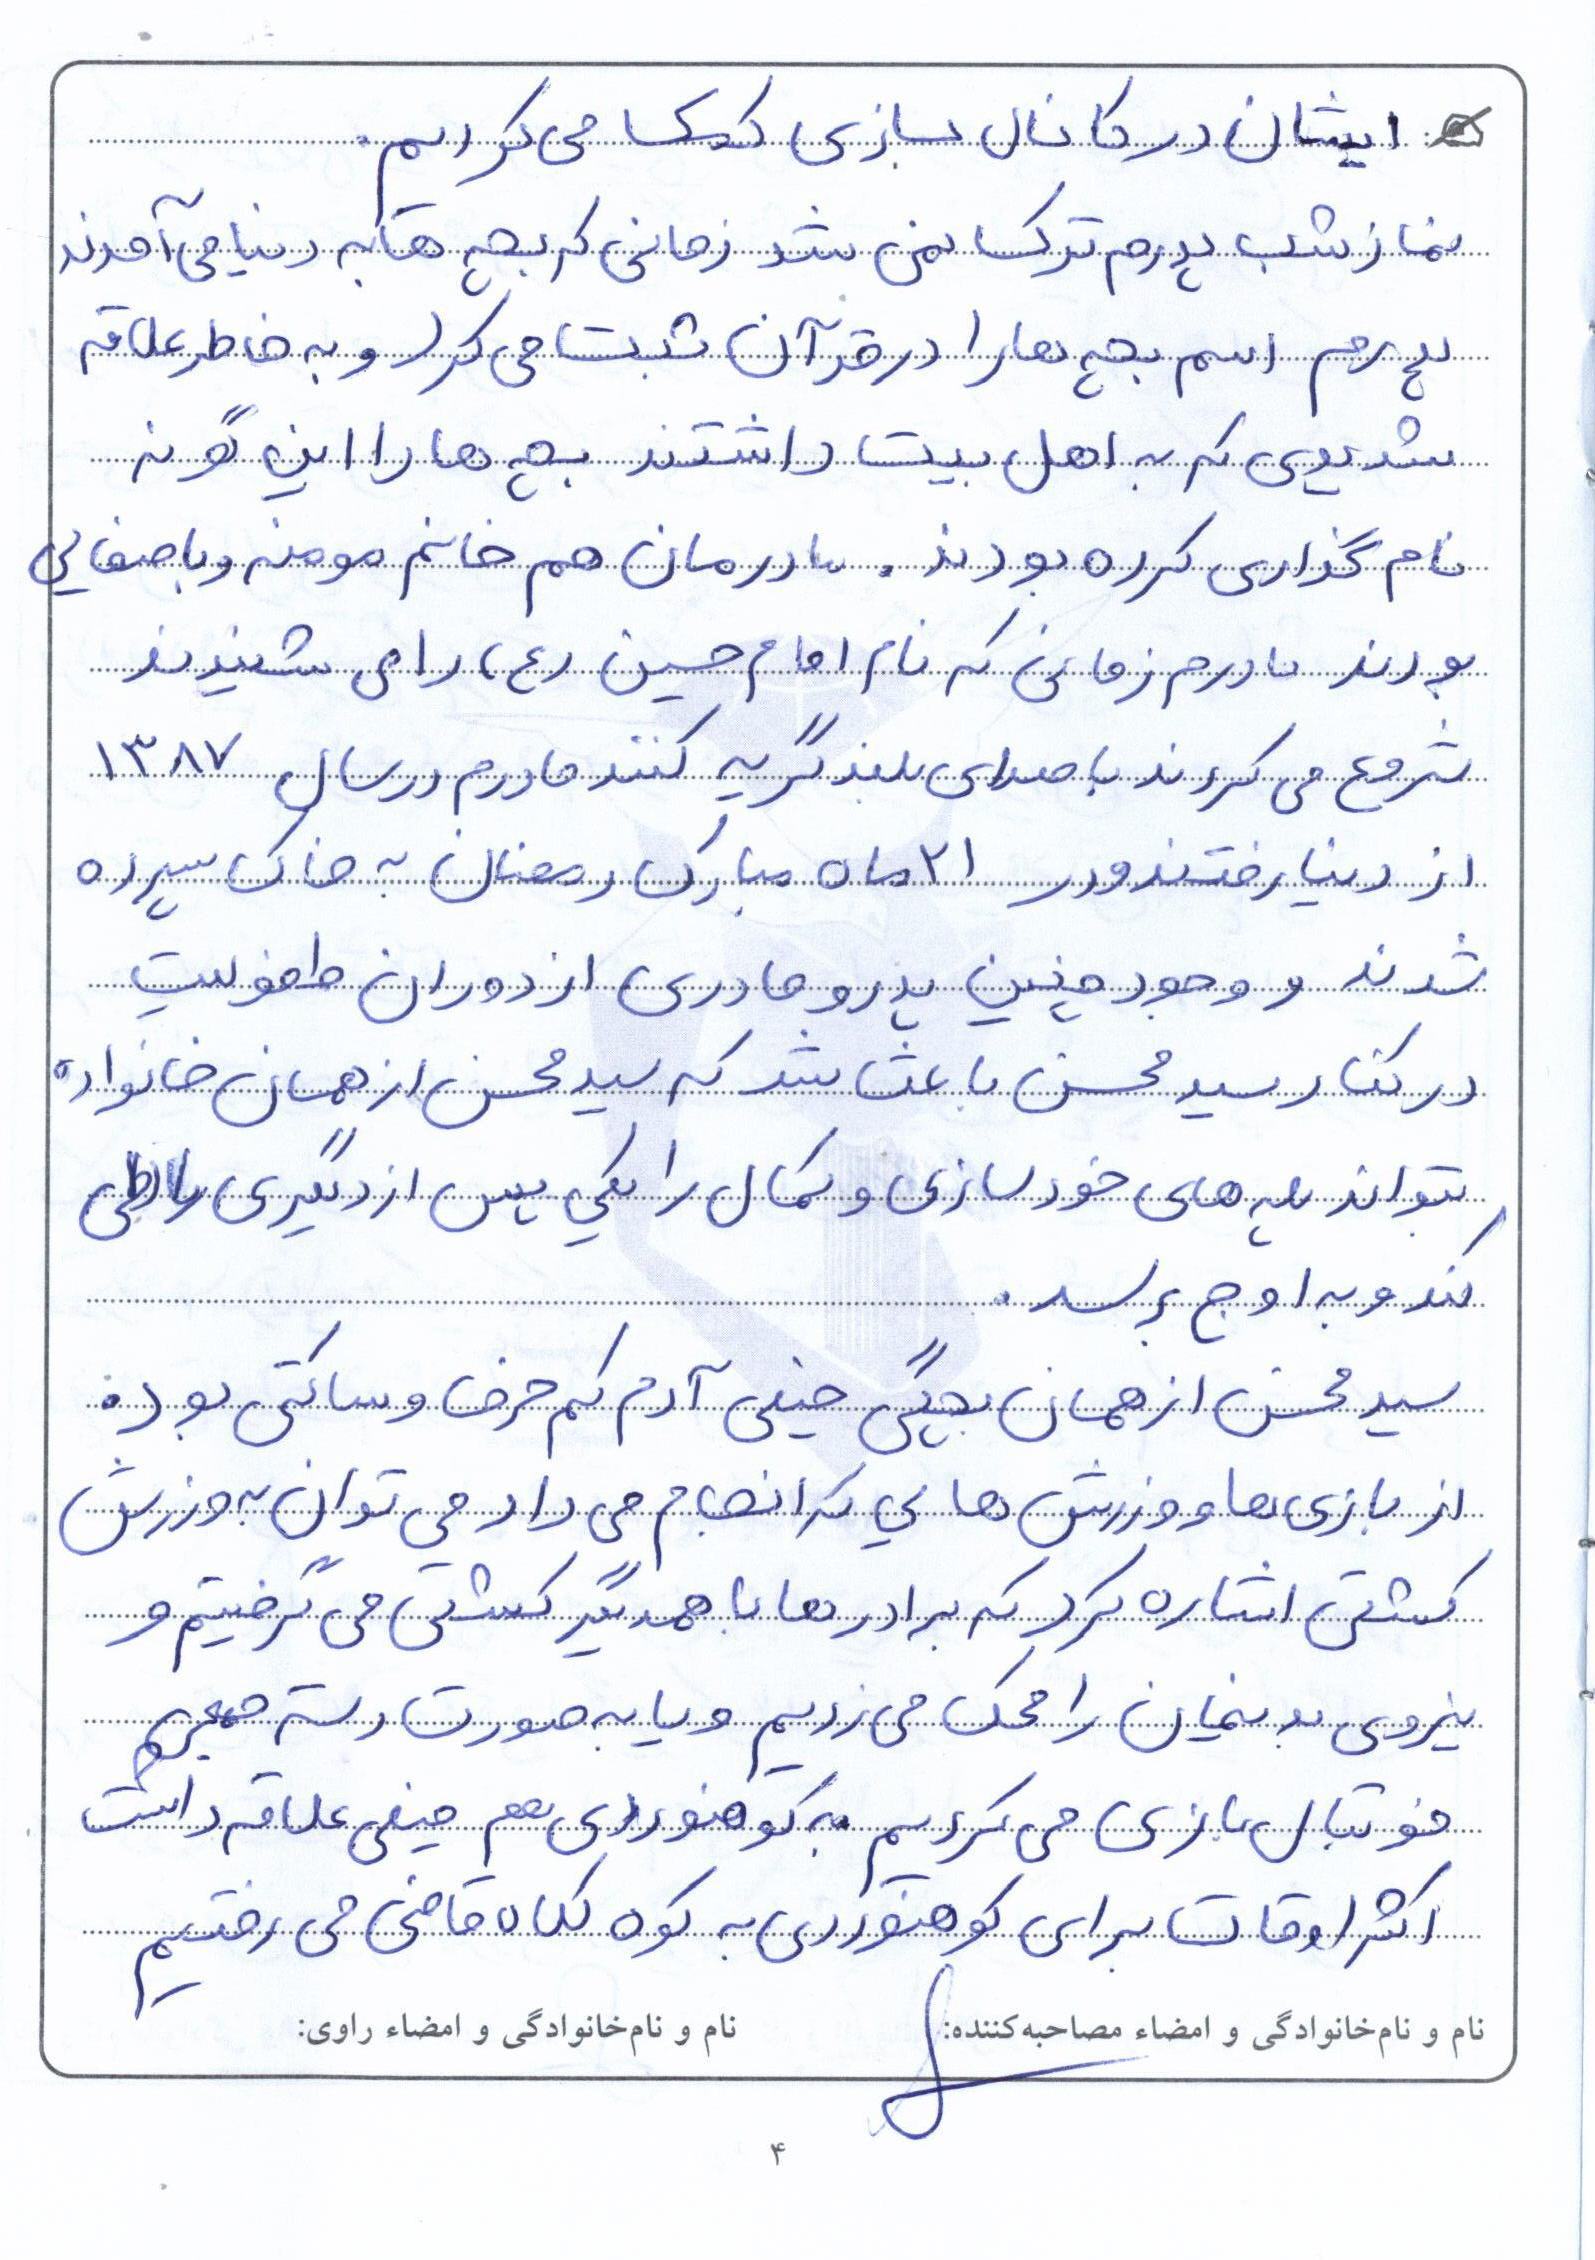 ایشان در کانال سازی کمک می کردیم.
نماز شب پدرم ترک نمی شد زمانی که بچه ها به دنیا می آمدند
پدرم اسم بچه ها را در قرآن ثبت می کرد و به خاطر علاقه
شدیدی که به اهل بیت داشتند بچه ها را این گونه
نام گذاری کرده بودند. مادرمان هم خانم مومنه و باصفایی
بودند مادرم زمانی که نام امام حسین (ع) را می شنیدند
شروع می کردند با صدای بلند گریه کنند مادرم در سال ۱۳۸۷
از دنیا رفتند و در ۲۱ ماه مبارک رمضان به خاک سپرده
شدند و وجود چنین پدر و مادری از دوران طفولیت
در کنار سید محسن باعث شد که سید محسن از همان خانواده
بتواند پله های خودسازی و کمال را یکی پس از دیگری طی
کند و به اوج برسد.
سید محسن از همان بچگی خیلی آدم کم حرف و ساکتی بوده.
از بازی ها و ورزش هایی که انجام می داد می توان به ورزش
کشتی اشاره کرد که برادرها با همدیگر کشتی می گرفتیم و
نیروی بدنیمان را محک می زدیم و یا به صورت دسته جمعی
فوتبال بازی می کردیم به کوهنوردی هم خیلی علاقه داشت
اکثر اوقات برای کوهنوردی به کوه کلاه قاضی می رفتیم
نام و نام‌خانوادگی و امضاء مصاحبه‌کننده: نام و نام‌خانوادگی و امضاء راوی:
۴